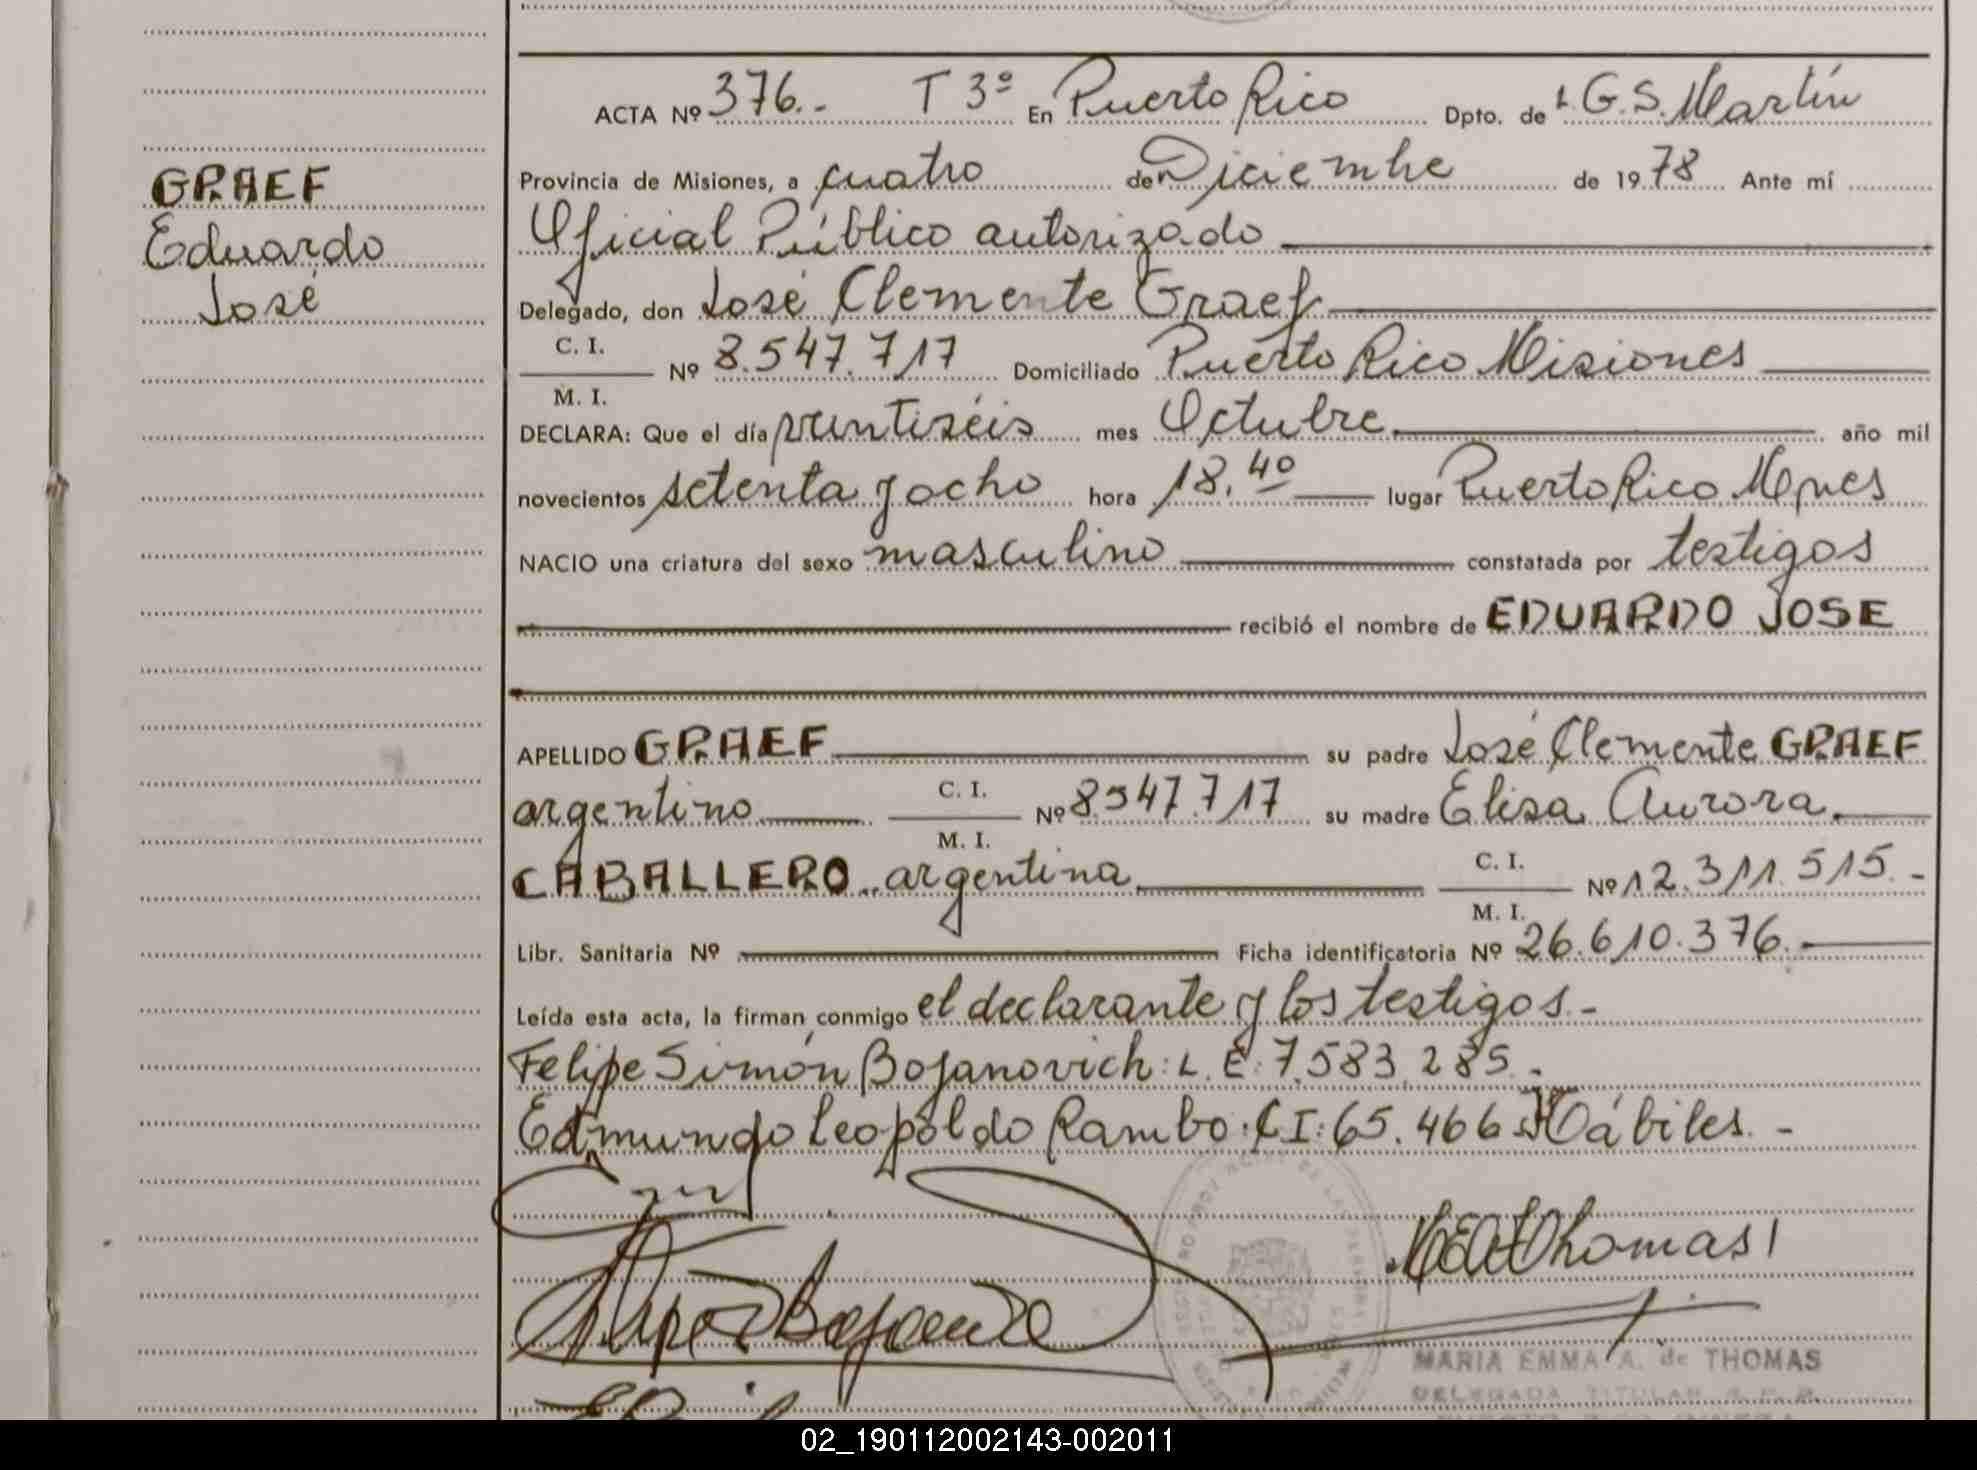 GRAEF
Eduardo
José
ACTA Nº 376.- T 3º En Puerto Rico Dpto. de L.G.S.Martín
Provincia de Misiones, a cuatro de Diciembre de 1978 Ante mí
Oficial Público autorizado
Delegado, don José Clemente Graef
C. I.
M. I.
Nº 8.547.717 Domiciliado Puerto Rico Misiones
DECLARA: Que el día veintiséis mes Octubre año mil
novecientos setenta y ocho hora 18.40 lugar Puerto Rico Mnes
NACIO una criatura del sexo masculino constatada por testigos
recibió el nombre de EDUARDO JOSE
APELLIDO GRAEF su padre José Clemente GRAEF
argentino C. I. M. I. Nº 8.547.717 su madre Elisa Aurora
CABALLERO argentina C. I. M. I. Nº 12.311.515.-
Libr. Sanitaria Nº Ficha identificatoria Nº 26.610.376.
Leída esta acta, la firman conmigo el declarante y los testigos.-
Felipe Simón Bojanovich: L.E. 7.583.285.-
Edmundo Leopoldo Rambo: CI: 65.466 Hábiles.-
Thomas
MARIA EMMA A. de THOMAS
DELEGADA TITULAR
02_190112002143-002011